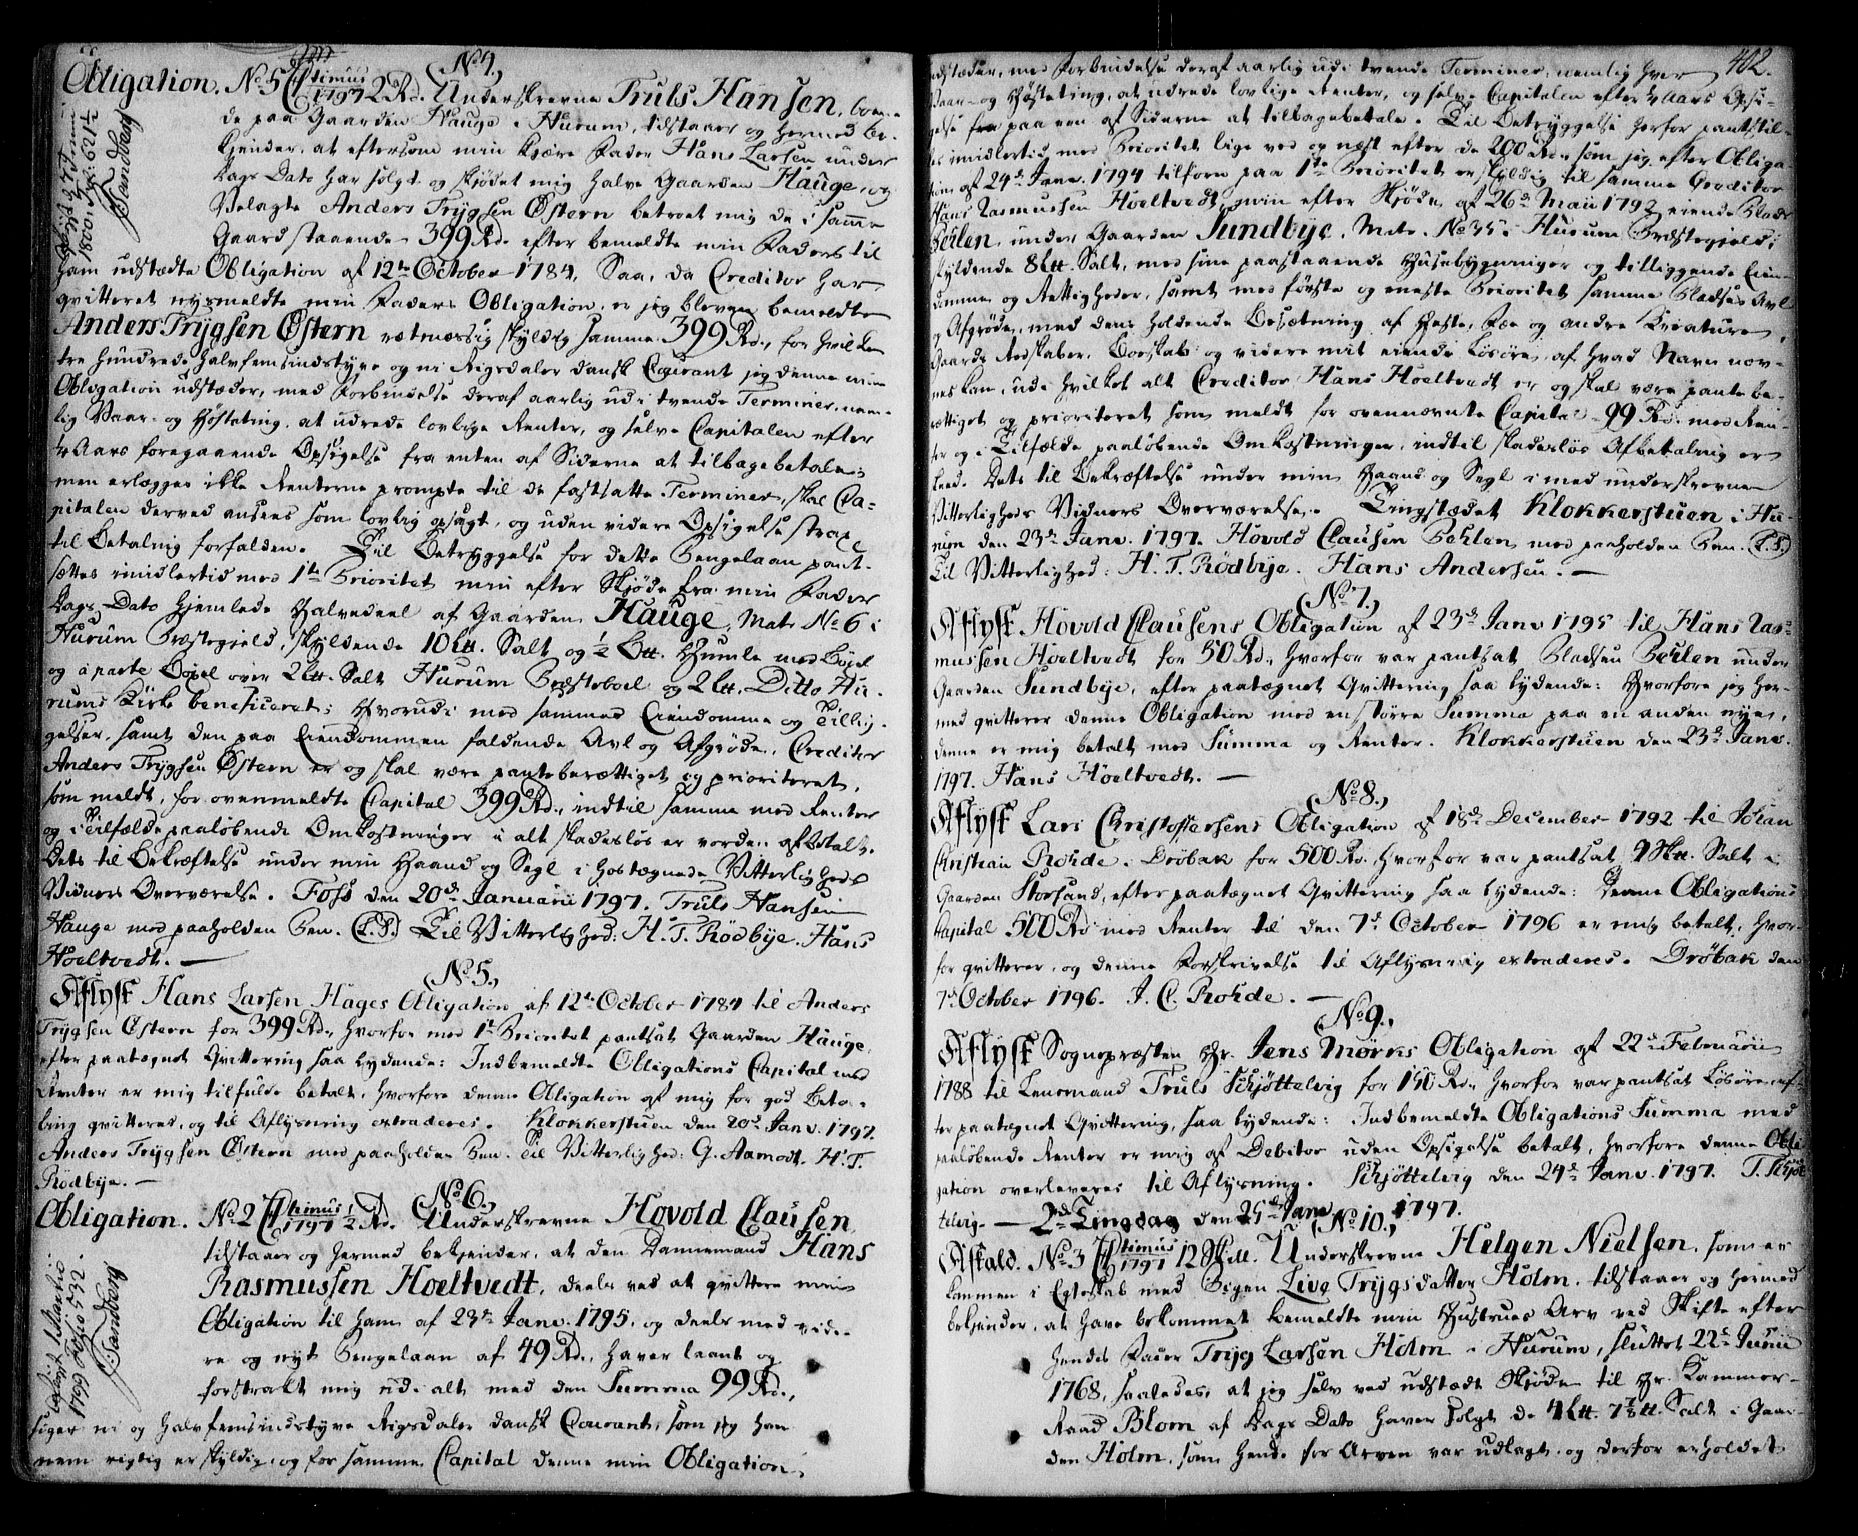 No 4.
Obligation. No 5 Ctimus 1797 2 Rd. Underskrevne Truls Hansen, boen-
de paa Gaarden Hauge i Hurum, tilstaaer og hermed be-
kiender, at eftersom min kiære Fader Hans Larsen under
Dags Dato har solgt og skiødet mig halve Gaarden Hauge, og
Velagte Anders Trygsen Østern betroet mig de i samme
Gaard staaende 399 Rd. efter bemeldte min Faders til
ham udstædte Obligation af 12te October 1784, Saa, da Creditor har
qvitteret nysmeldte min Faders Obligation, er jeg bleven bemeldte
Anders Trygsen Østern retmæssig skyldig samme 399 Rd., for hvilke
tre hundrede halvfemsindstyve og ni Rigsdaler dansk Courant jeg denne min
Obligation udstæder, med Forbindelse deraf aarlig udi tvende Terminer, nem-
lig Vaar- og Høsteting, at udrede lovlige Renter, og selve Capitalen efter
1/4 Aars foregaaende Opsigelse fra enten af Siderne at tilbagebetale;
men erlægges ikke Renterne prompte til de fastsatte Terminer, skal Ca-
pitalen derved ansees som lovlig opsagt, og uden videre Opsigelse strax
til Betaling forfalden. Til Betryggelse for dette Pengelaan pant-
sættes imidlertid med 1te Prioritet min efter Skjøde fra min Fader
Dags Dato hjemlede Halvedeel af Gaarden Hauge, Matr. No 6 i
Hurum Præstegield, skyldende 10 Ltt. Salt og 1/2 Btt. Humle med Bøxel
og aparte Bøxel over 2 Ltt. Salt Hurum Præsteboel og 2 Ltt. Ditto Hu-
rums Kirke beneficeret; Hvorudi med sammes Eiendomme og Tillig-
gelser, samt den paa Eiendommen faldende Avl og Afgrøde, Creditor
Anders Trygsen Østern er og skal være panteberættiget og prioriteret,
som meldt, for ovenmeldte Capital 399 Rd., indtil samme med Renter
og i Tilfælde paaløbende Omkostninger i alt skadesløs er vorden afbetalt.
Dets til Bekræftelse under min Haand og Segl i hostegnede Vitterligheds
Vidners Overværelse. Foss den 20de Januarii 1797. Truls Hansen
Hauge med paaholden Pen. (L.S.) Til Vitterlighed: H. T. Rødbye. Hans
Hoeltvedt. —
No 5.
Aflyst Hans Larsen Hages Obligation af 12te October 1784 til Anders
Trygsen Østern for 399 Rd., hvorfor med 1te Prioritet pantsat Gaarden Hauge,
efter paategnet Qvittering saa lydende: Indbemeldte Obligations Capital med
Renter er mig tilfulde betalt, hvorfore denne Obligation af mig for god Beta-
ling qvitteres, og til Aflysning extraderes. Klokkerstuen den 20de Janv. 1797.
Anders Trygsen Østern med paaholden Pen. Til Vitterlighed: G. Aamodt. H. T.
Rødbye. —
No 6.
Obligation. No 2 Ctimus 1797 1/2 Rd. Underskrevne Hovold Clausen
tilstaaer og hermed bekiender, at den Dannemand Hans
Rasmussen Hoeltvedt, deels ved at qvittere min
Obligation til ham af 23de Janv. 1795, og deels med vide-
re og nyt Pengelaan af 49 Rd., haver laant og
forstrakt mig udi alt med den Summa 99 Rd.,
siger ni og halvfemsindstyve Rigsdaler dansk Courant, som jeg ham
nem rigtig er skyldig, og for samme Capital denne min Obligation
1800 Fol: 621 1/2
Sandberg
1799 Folio 532
Sandberg
402.
udstæder, med Forbindelse deraf aarlig udi tvende Terminer, nemlig hver
Vaar- og Høsteting, at udrede lovlige Renter, og selve Capitalen efter 1/4 Aars Opsi-
gelse fra paa een af Siderne at tilbagebetale. Til Betryggelse herfor pantstil-
les imidlertid med Prioritet lige ved og næst efter de 200 Rd., som jeg efter Obliga-
tion af 24de Janv. 1794 tilforn paa 1te Prioritet er skyldig til samme Creditor
Hans Rasmussen Hoeltvedt, min efter Skjøde af 26de Maii 1792 eiende Pladse
Pehlen under Gaarden Sundbye, Matr. No 35 i Hurum Præstegield,
skyldende 8 Ltt. Salt, med sine paastaaende Husebygninger og tilliggende Eien-
domme og Rettigheder, samt med første og eneste Prioritet samme Pladses Avl
og Afgrøde, med dens holdende Besætning af Heste, Fæe og andre Creature,
Gaards Redskaber, Boeskab og videre mit eiende Løsøre, af hvad Navn næv-
nes kan, udi hvilket alt Creditor Hans Hoeltvedt er og skal være pantebe-
rettiget og prioriteret som meldt for ovennævnte Capital 99 Rd. med Ren-
ter og i Tilfælde paaløbende Omkostninger, indtil skadesløs Afbetaling er
skeed. Dets til Bekræftelse under min Haand og Segl i med underskrevne
Vitterligheds Vidners Overværelse. Tingstædet Klokkerstuen i Hu-
rum den 23de Janv. 1797. Hovold Clausen Pehlen med paaholden Pen. (L.S.)
Til Vitterlighed: H. T. Rødbye. Hans Andersen. —
No 7.
Aflyst Hovold Clausens Obligation af 23de Janv 1795 til Hans Ras-
mussen Hoeltvedt for 50 Rd., hvorfor var pantsat Pladsen Pehlen under
Gaarden Sundbye, efter paategnet Qvittering saa lydende: Hvorfore jeg her-
med qvitterer denne Obligation med en større Summa paa en anden nye,
denne er mig betalt med Summa og Renter. Klokkerstuen den 23de Janv.
1797. Hans Hoeltvedt. —
No 8.
Aflyst Lars Christophersens Obligation af 18de December 1792 til Johan
Christian Rohde i Drøbak for 500 Rd., hvorfor var pantsat 9 Sktt. Salt i
Gaarden Storsand, efter paategnet Qvittering saa lydende: Denne Obligations
Kapital 500 Rd med Renter til den 7de October 1796 er mig betalt, hvor-
for qvitterer, og denne Forskrivelse til Aflysning extraderes. Drøbak den
7de October 1796. J. C. Rohde. —
No 9.
Aflyst Sognepræsten Hr. Jens Mørks Obligation af 22de Februarii
1788 til Lensmand Truls Schjøttelvig for 150 Rd., hvorfor var pantsat Løsøre, ef-
ter paategnet Qvittering, saa lydende: Indbemeldte Obligations Summa med
paaløbende Renter er mig af Debitor uden Opsigelse betalt, hvorfore denne Obli-
gation overleveres til Aflysning. Schjøttelvig den 24de Janv. 1797. T. Schjøt-
telvig. — 2de Tingdag den 25de Janv. 1797.
No 10.
Afkald. No 3 Ctimus 1797 12 Skill. Underskrevne Helgen Nielsen, som er
kommen i Egteskab med Pigen Live Trygsdatter Holm, tilstaaer og hermed
bekiender, at have bekommet bemeldte min Hustrues Arv ved Skifte efter
hendes Fader Tryg Larsen Holm i Hurum, sluttet 22de Junii
1768, saaledes, at jeg selv ved udstædt Skjøde til Hr. Kammer-
Raad Blom af Dags Dato haver solgt de 4 Ltt. 7 1/2 tt. Salt i Gaar-
den Holm, som hende for Arven var udlagt, og derfor erholdet